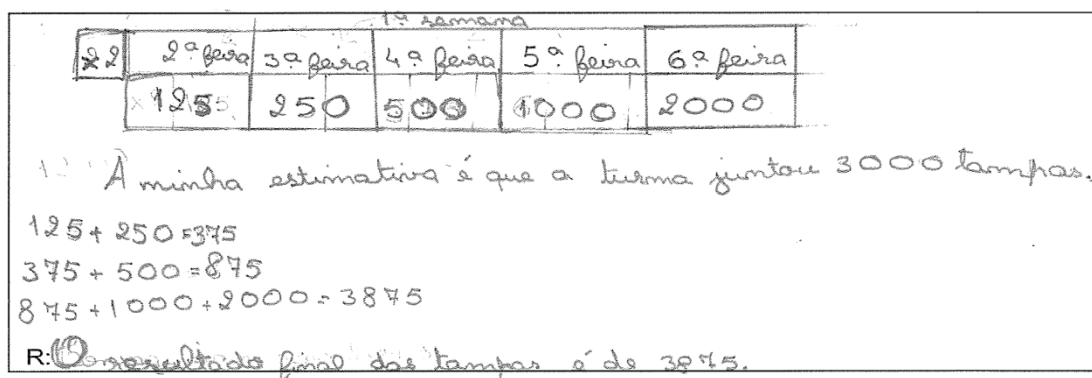 1ª semana
x2 2ª feira 3ª feira 4ª feira 5ª feira 6ª feira
125 250 500 1000 2000
A minha estimativa é que a turma juntou 3000 tampas.
125 + 250 = 375
375 + 500 = 875
875 + 1000 + 2000 = 3875
R: O resultado final das tampas é de 3875.